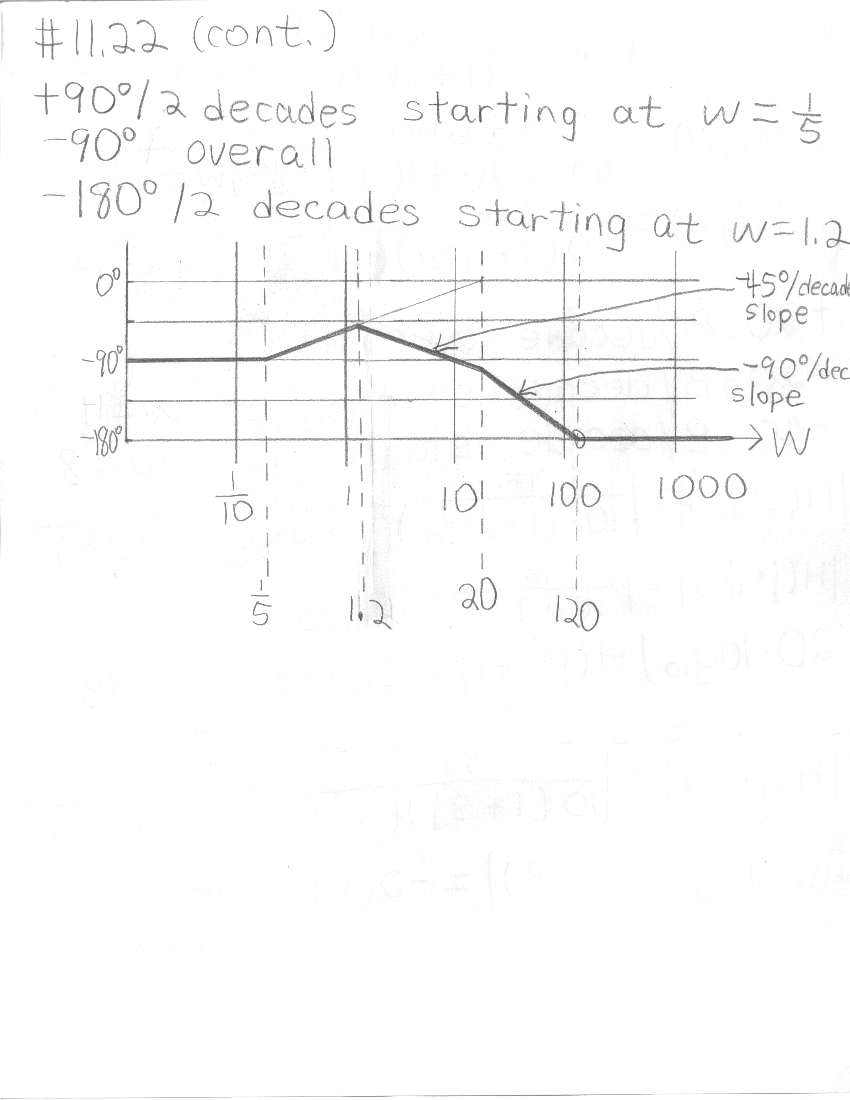 #11.22 (cont.)
+90°/2 decades starting at w = 1/5
-90° overall
-180°/2 decades starting at w=1.2
0°
-45°/decade
slope
-90°
-90°/dec
slope
-180°
W
1/10 1 10 100 1000
1/5 1.2 20 120